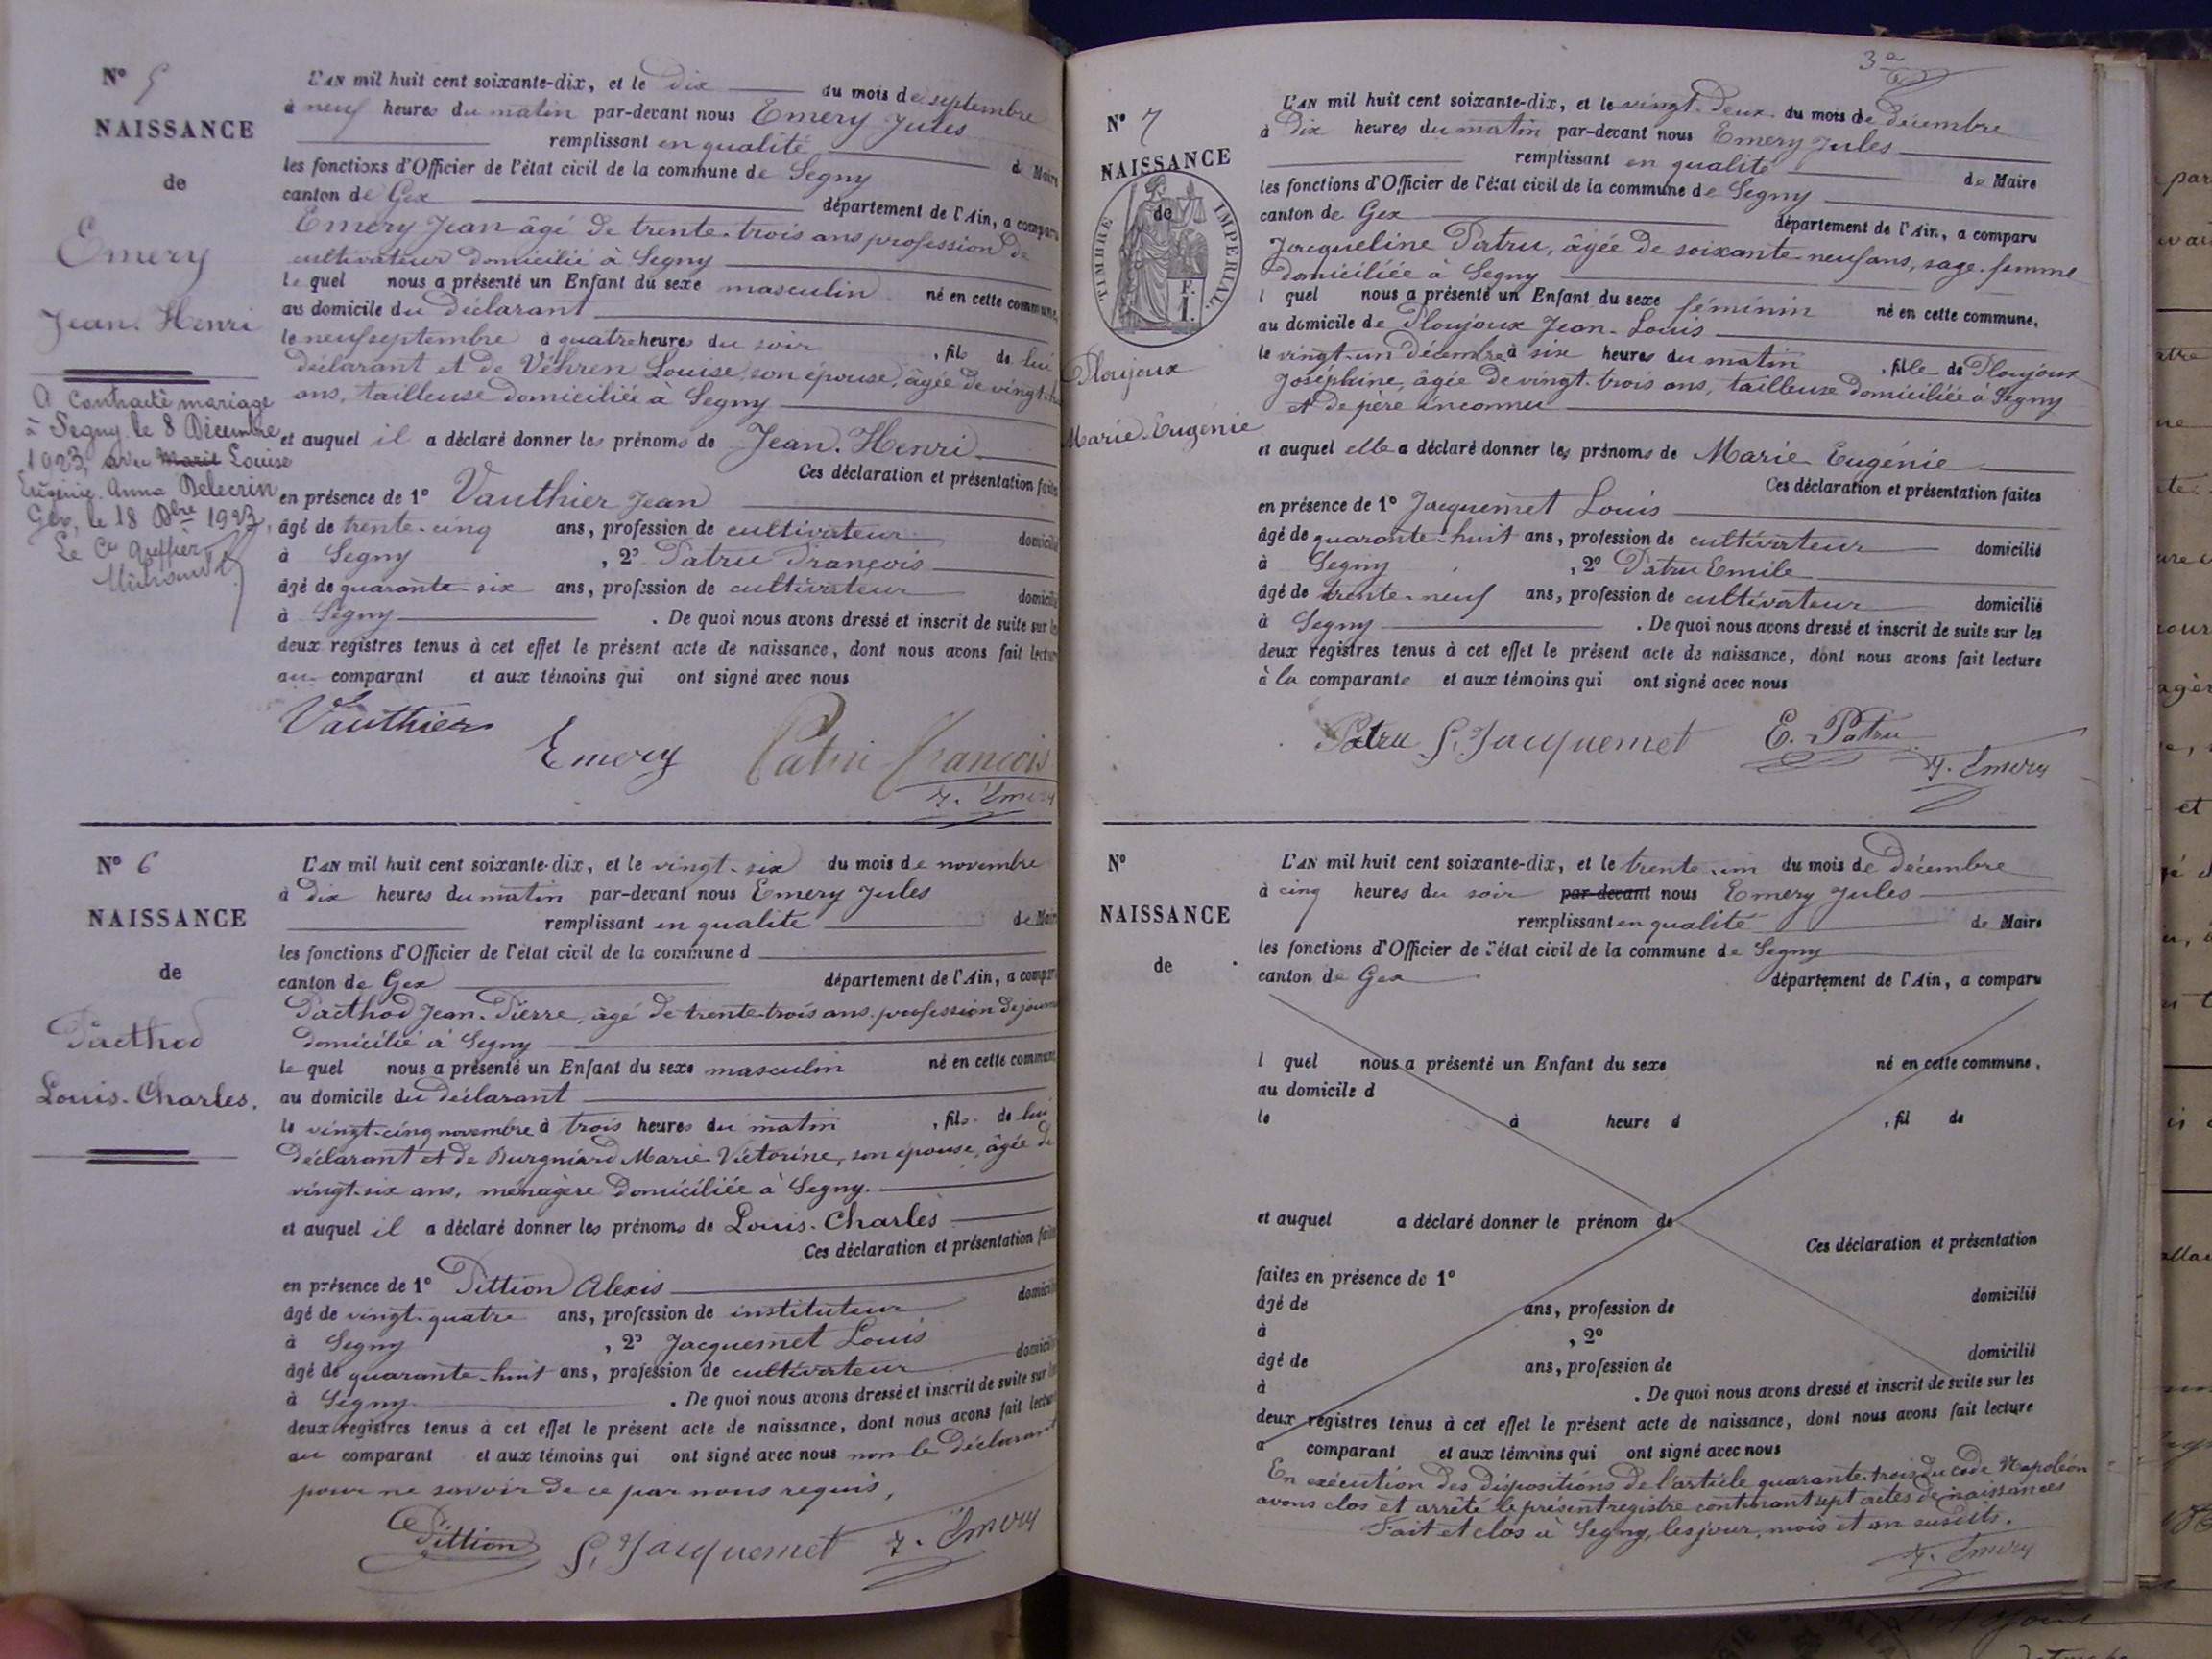 N° 5
NAISSANCE
de
Emery
Jean-Henri
A contracté mariage
à Segny le 8 Décembre
1923, avec Marie Louise
Eugénie Anna Delecrin
Gex, le 18 Dbre 1923,
Le Cis Greffier
L'AN mil huit cent soixante-dix, et le dix du mois de septembre
à neuf heures du matin par-devant nous Emery Jules
remplissant en qualité de Maire
les fonctions d'Officier de l'état civil de la commune de Segny
canton de Gex département de l'Ain, a comparu
Emery Jean âgé de trente-trois ans profession de
cultivateur domicilié à Segny
le quel nous a présenté un Enfant du sexe masculin né en cette commune,
au domicile du déclarant
le neuf septembre à quatre heures du soir, fils de lui
déclarant et de Vehren Louise, son épouse, âgée de vingt
ans, tailleuse domiciliée à Segny
et auquel il a déclaré donner les prénoms de Jean-Henri
Ces déclaration et présentation faites
en présence de 1° Vauthier Jean
âgé de trente-cinq ans, profession de cultivateur domicilié
à Segny, 2° Patru François
âgé de quarante-six ans, profession de cultivateur domicilié
à Segny. De quoi nous avons dressé et inscrit de suite sur les
deux registres tenus à cet effet le présent acte de naissance, dont nous avons fait lecture
au comparant et aux témoins qui ont signé avec nous
Vauthier
Emery Patru François
J. Emery
N° 6
NAISSANCE
de
Pacthod
Louis-Charles.
L'AN mil huit cent soixante-dix, et le vingt-six du mois de novembre
à dix heures du matin par-devant nous Emery Jules
remplissant en qualité de Maire
les fonctions d'Officier de l'état civil de la commune d
canton de Gex département de l'Ain, a comparu
Pacthod Jean-Pierre, âgé de trente-trois ans profession de journ
domicilié à Segny
le quel nous a présenté un Enfant du sexe masculin né en cette commune,
au domicile du déclarant
le vingt-cinq novembre à trois heures du matin, fils de lui
déclarant et de Burgniard Marie Victorine, son épouse, âgée de
vingt-six ans, ménagère domiciliée à Segny.
et auquel il a déclaré donner les prénoms de Louis-Charles
Ces déclaration et présentation faites
en présence de 1° Pittion Alexis
âgé de vingt-quatre ans, profession de instituteur domicilié
à Segny, 2° Jacquemet Louis
âgé de quarante-huit ans, profession de cultivateur domicilié
à Segny. De quoi nous avons dressé et inscrit de suite sur les
deux registres tenus à cet effet le présent acte de naissance, dont nous avons fait lecture
au comparant et aux témoins qui ont signé avec nous non le déclarant
pour ne savoir de ce par nous requis,
Pittion L. Jacquemet J. Emery
3e
N° 7
NAISSANCE
de
TIMBRE IMPERIAL.
F.
1.
Ploujoux
Marie-Eugénie
L'AN mil huit cent soixante-dix, et le vingt-deux du mois de décembre
à dix heures du matin par-devant nous Emery Jules
remplissant en qualité de Maire
les fonctions d'Officier de l'état civil de la commune de Segny
canton de Gex département de l'Ain, a comparu
Jacqueline Patru, âgée de soixante-neuf ans, sage-femme
domiciliée à Segny
l quel nous a présenté un Enfant du sexe féminin né en cette commune,
au domicile de Ploujoux Jean-Louis
le vingt-un décembre à six heures du matin, fille de Ploujoux
Joséphine, âgée de vingt-trois ans, tailleuse domiciliée à Segny
et de père inconnu
et auquel elle a déclaré donner les prénoms de Marie Eugénie
Ces déclaration et présentation faites
en présence de 1° Jacquemet Louis
âgé de quarante-huit ans, profession de cultivateur domicilié
à Segny, 2° Patru Emile
âgé de trente-neuf ans, profession de cultivateur domicilié
à Segny. De quoi nous avons dressé et inscrit de suite sur les
deux registres tenus à cet effet le présent acte de naissance, dont nous avons fait lecture
à la comparante et aux témoins qui ont signé avec nous
Patru L. Jacquemet E. Patru
J. Emery
N°
NAISSANCE
de
L'AN mil huit cent soixante-dix, et le trente-un du mois de décembre
à cinq heures du soir par-devant nous Emery Jules
remplissant en qualité de Maire
les fonctions d'Officier de l'état civil de la commune de Segny
canton de Gex département de l'Ain, a comparu
l quel nous a présenté un Enfant du sexe né en cette commune,
au domicile d
le à heure d, fil de
et auquel a déclaré donner le prénom de
Ces déclaration et présentation
faites en présence de 1°
âgé de ans, profession de domicilié
à, 2°
âgé de ans, profession de domicilié
à. De quoi nous avons dressé et inscrit de suite sur les
deux registres tenus à cet effet le présent acte de naissance, dont nous avons fait lecture
a comparant et aux témoins qui ont signé avec nous
En exécution des dispositions de l'article quarante-trois du code Napoléon
avons clos et arrêté le présent registre contenant sept actes de naissances
Fait et clos à Segny, les jour, mois et an susdits.
J. Emery